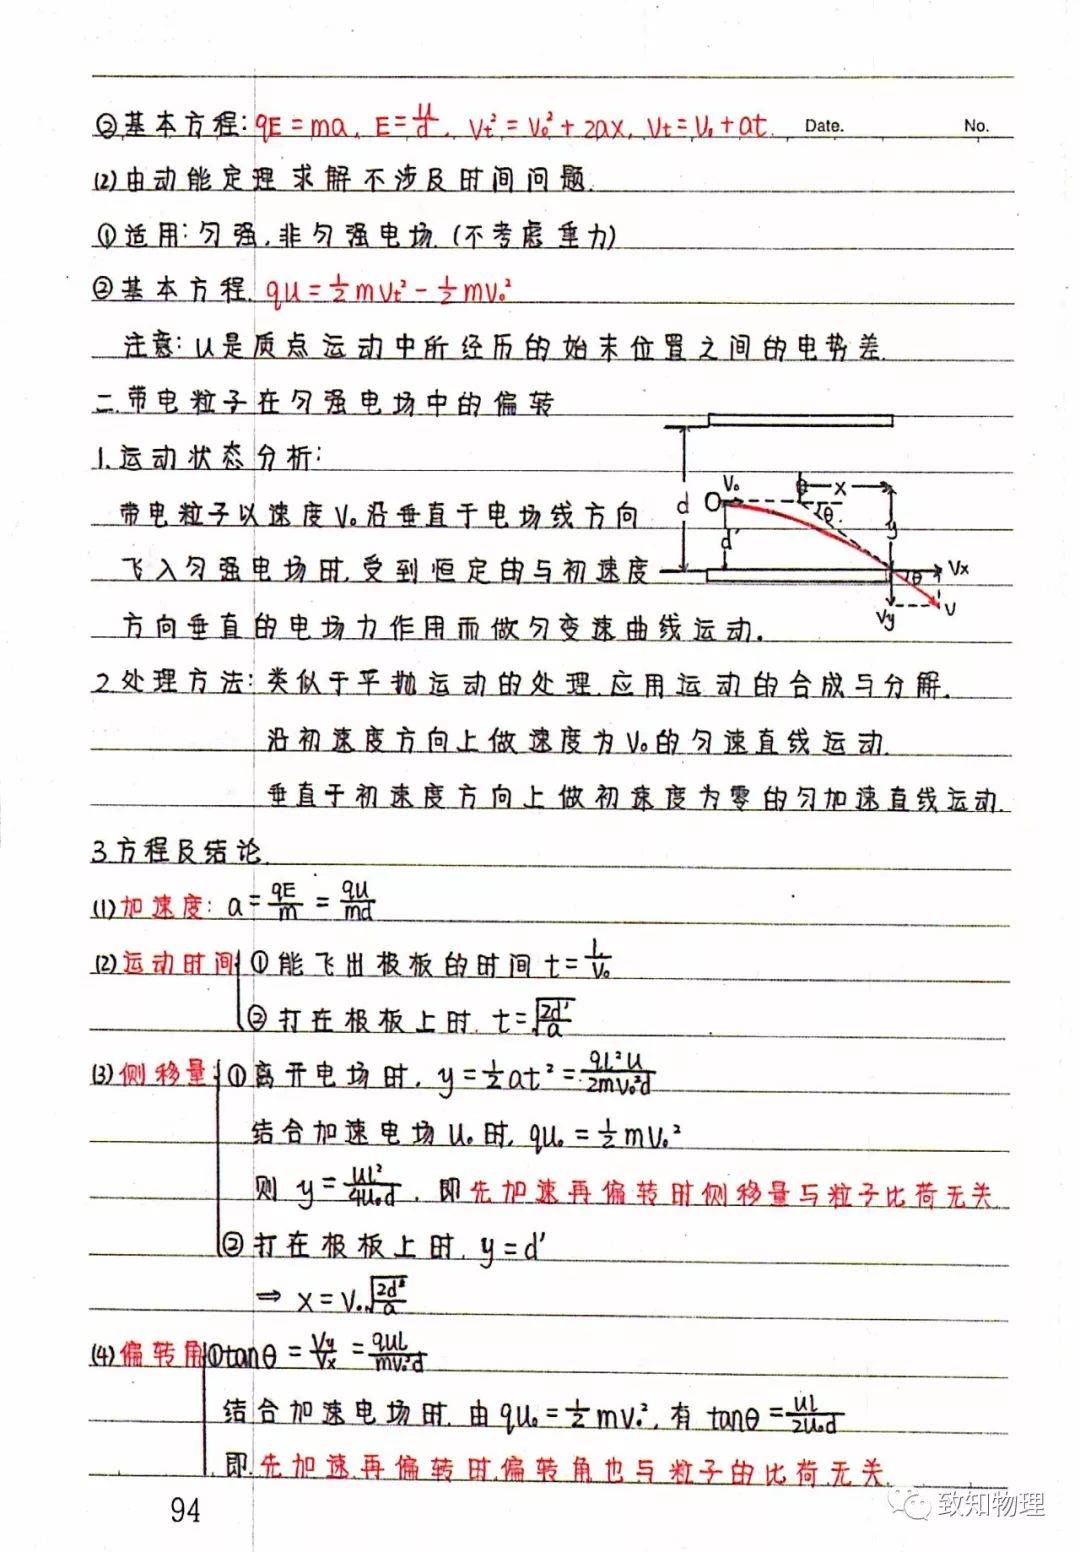 ②基本方程: qE=ma, E=U/d, Vt²=V₀²+2ax, Vt=V₀+at. Date. No.
(2)由动能定理求解不涉及时间问题.
①适用:匀强,非匀强电场.(不考虑重力)
②基本方程. qU=½mVt²-½mV₀²
注意:U是质点运动中所经历的始末位置之间的电势差.
二.带电粒子在匀强电场中的偏转
1.运动状态分析:
带电粒子以速度V₀沿垂直于电场线方向
飞入匀强电场时,受到恒定的与初速度
方向垂直的电场力作用而做匀变速曲线运动.
d O V₀ d' x θ y θ Vx Vy V
2.处理方法:类似于平抛运动的处理.应用运动的合成与分解.
沿初速度方向上做速度为V₀的匀速直线运动.
垂直于初速度方向上做初速度为零的匀加速直线运动.
3.方程及结论.
(1)加速度: a=qE/m=qU/md
(2)运动时间 ①能飞出极板的时间t=l/V₀
②打在极板上时. t=√(2d'/a)
(3)侧移量: ①离开电场时, y=½at²=qL²U/2mV₀²d
结合加速电场U₀时, qU₀=½mV₀²
则 y=UL²/4U₀d. 即先加速再偏转时侧移量与粒子比荷无关.
②打在极板上时. y=d'
⇒ x=V₀√(2d'/a)
(4)偏转角 ①tanθ=Vy/Vx=qUL/mV₀²d
结合加速电场时.由qU₀=½mV₀²,有 tanθ=UL/2U₀d
即.先加速.再偏转时.偏转角也与粒子的比荷无关.
94
致知物理